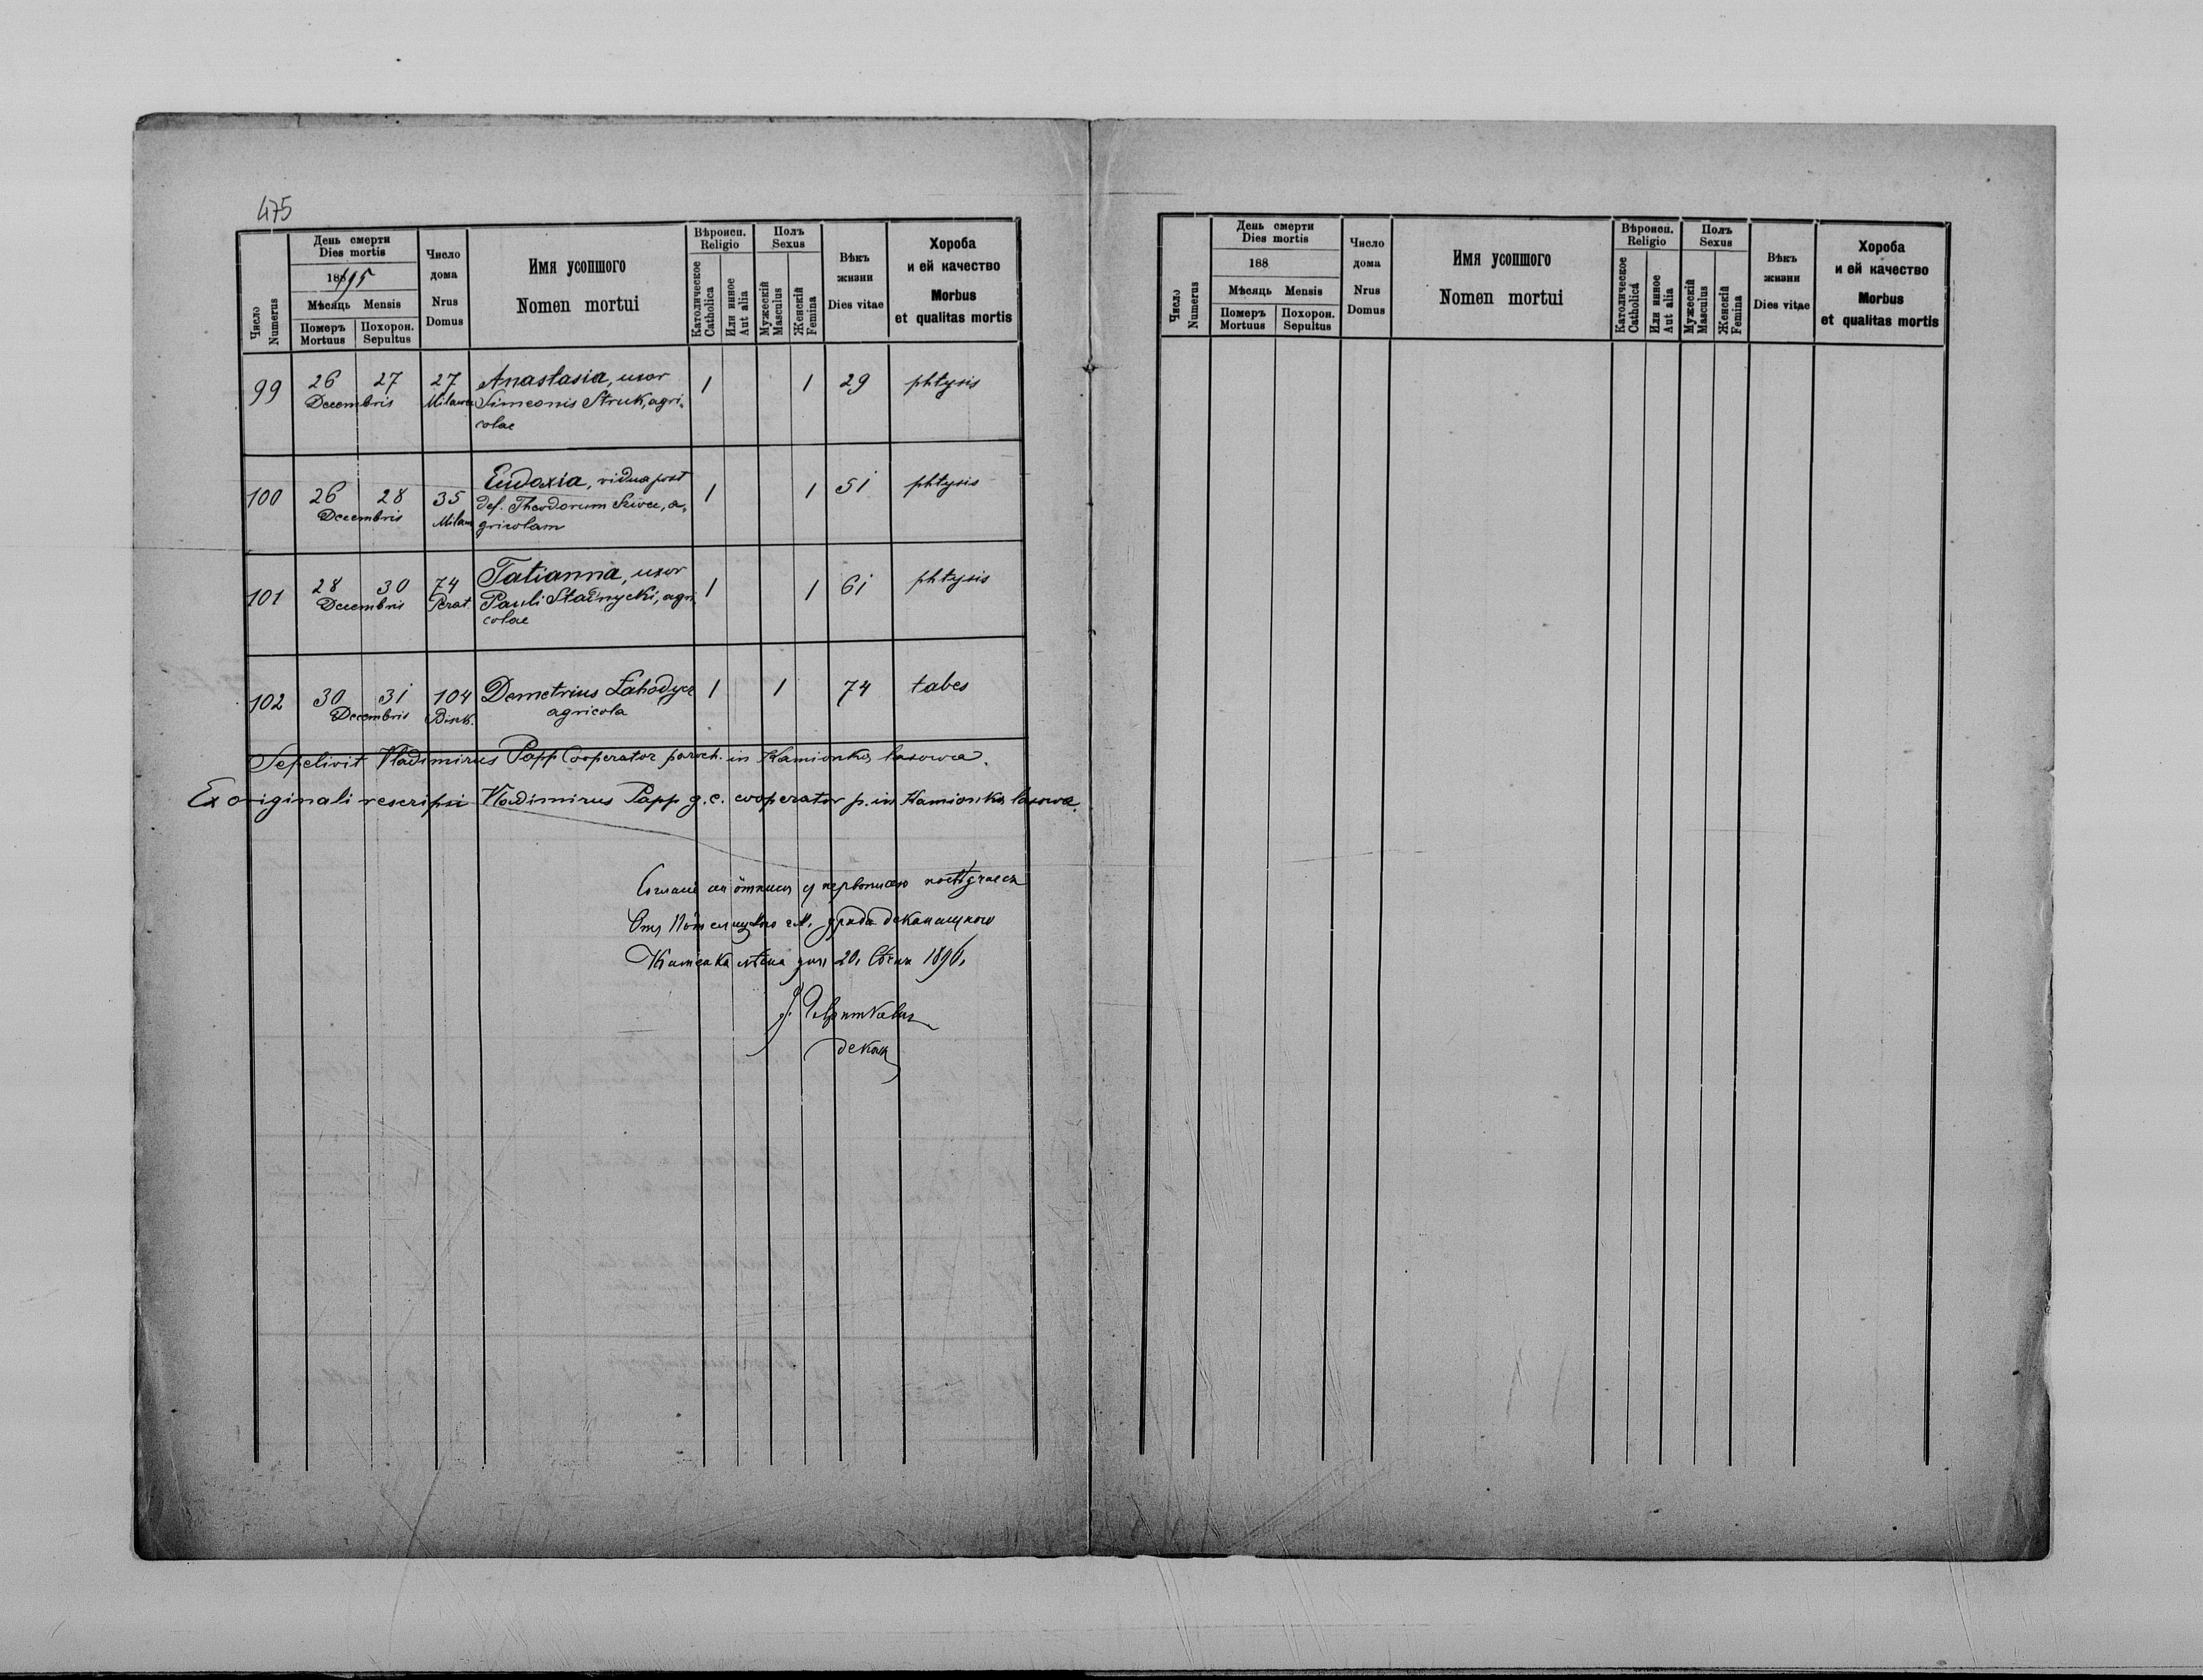 475
Число Numerus
День смерти Dies mortis
1895
Мѣсяць Mensis
Померъ Mortuus
Похорон. Sepultus
Число дома Nrus Domus
Имя усопшого
Nomen mortui
Вѣроисп. Religio
Католическое Catholica
Или инное Aut alia
Полъ Sexus
Мужескій Masculus
Женскій Femina
Вѣкъ жизни Dies vitae
Хороба и ей качество
Morbus et qualitas mortis
99 26 27 27 Anastasia, uxor 1 1 29 phtysis
Decembris Simeonis Struk, agri-
colae
100 26 28 35 Eudoxia, vidua post 1 1 51 phtysis
Decembris Milan def. Theodorum, a-
gricolam
101 28 30 74 Tatianna, uxor 1 1 61 phtysis
Decembris Perat. Pauli, agri-
colae
102 30 31 104 Demetrius Łahodycz 1 1 74 tabes
Decembris Bink. agricola
Sepelivit Vladimirus Papp Cooperator paroch. in Kamionka lasowa.
Ex originali rescripsi Vladimirus Papp g. c. cooperator p. in Kamionka lasowa.
дня 20, 1896,
декан
Число Numerus
День смерти Dies mortis
188
Мѣсяць Mensis
Померъ Mortuus
Похорон. Sepultus
Число дома Nrus Domus
Имя усопшого
Nomen mortui
Вѣроисп. Religio
Католическое Catholica
Или инное Aut alia
Полъ Sexus
Мужескій Masculus
Женскій Femina
Вѣкъ жизни Dies vitae
Хороба и ей качество
Morbus et qualitas mortis